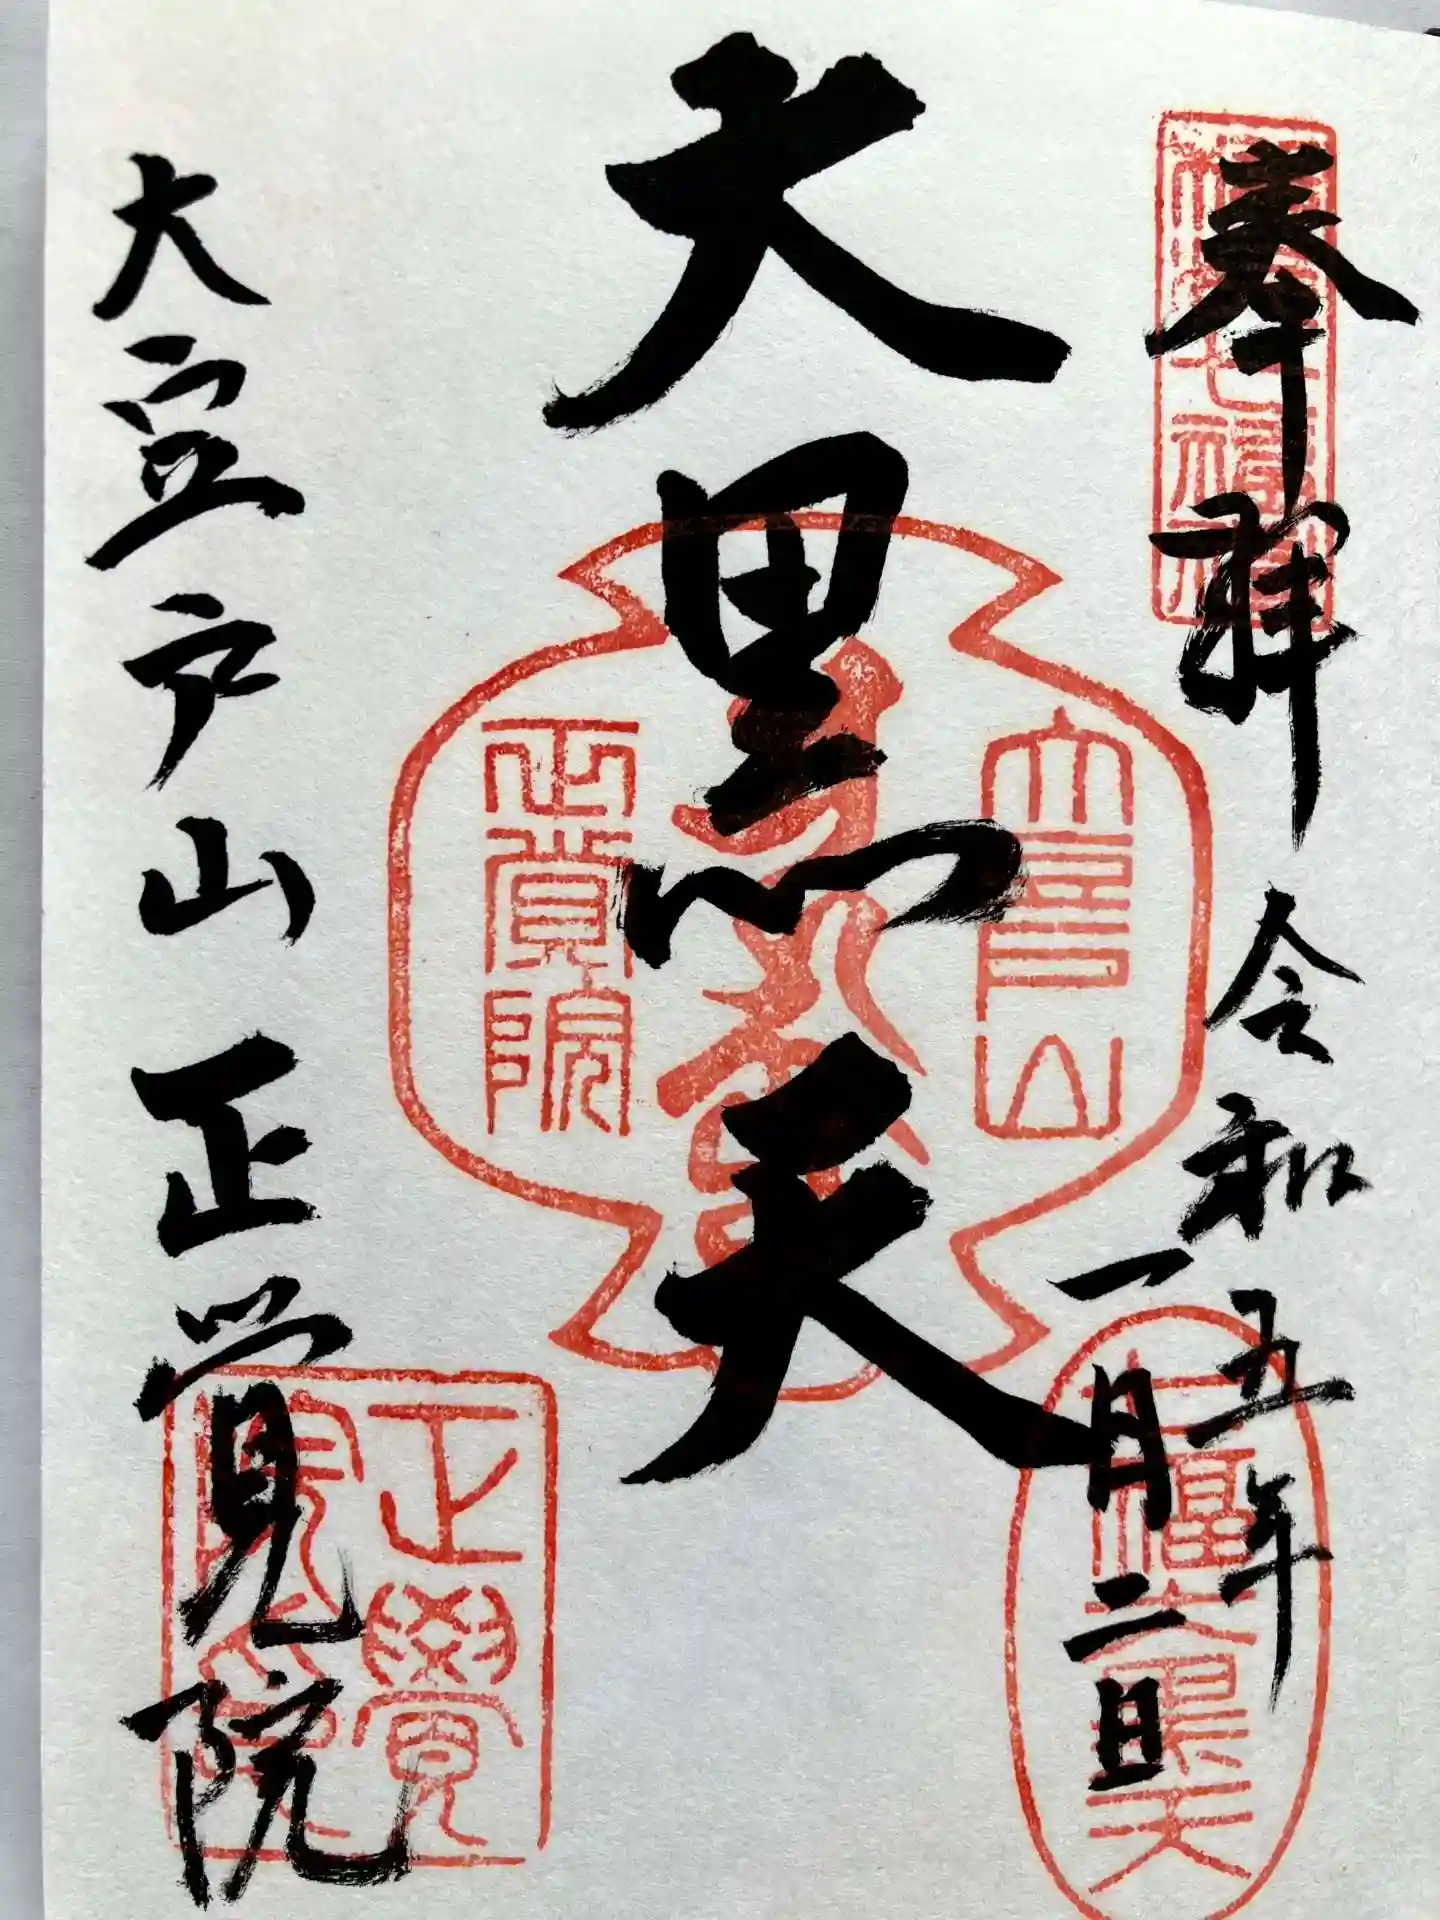 奉拝
令和五年
一月二日
大黒天
大豆戸山正覚院
正覚院
正覺
大黒天